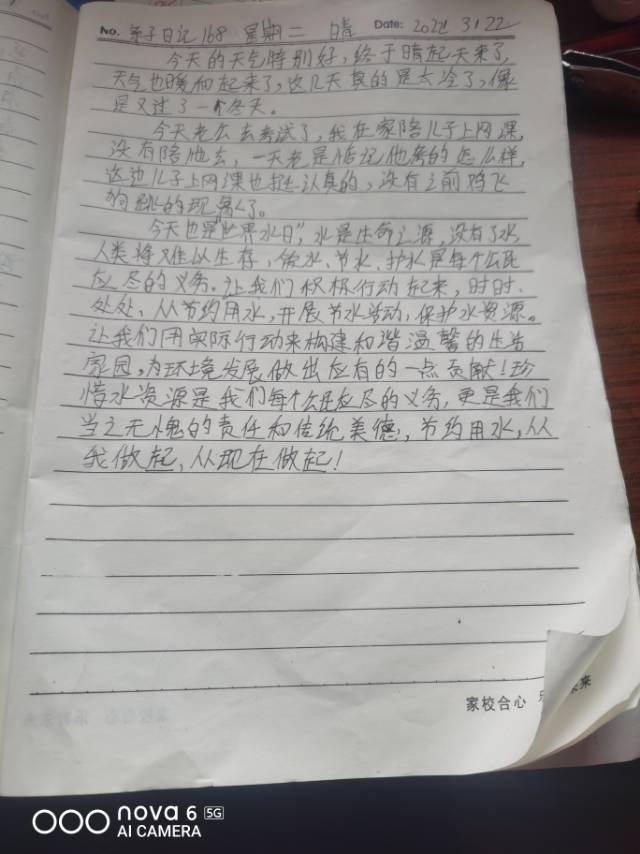 No. 亲子日记168 星期二 晴 Date: 2022 3.22
今天的天气特别好，终于晴起天来了，
天气也暖和起来了，这几天真的是太冷了，像
是又过了一个冬天。
今天老公去考试了，我在家陪儿子上网课，
没有陪他去，一天老是惦记他考的怎么样，
这边儿子上网课也挺认真的，没有之前鸡飞
狗跳的现象了。
今天也是“世界水日”，水是生命之源，没有了水，
人类将难以生存，做水、节水、护水是每个公民
应尽的义务。让我们积极行动起来，时时、
处处、从节约用水，开展节水活动，保护水资源。
让我们用实际行动来构建和谐温馨的生活
家园，为环境发展做出应有的一点贡献！珍
惜水资源是我们每个公民应尽的义务，更是我们
当之无愧的责任和传统美德，节约用水，从
我做起，从现在做起！
家校合心
未来
nova 6 5G
AI CAMERA